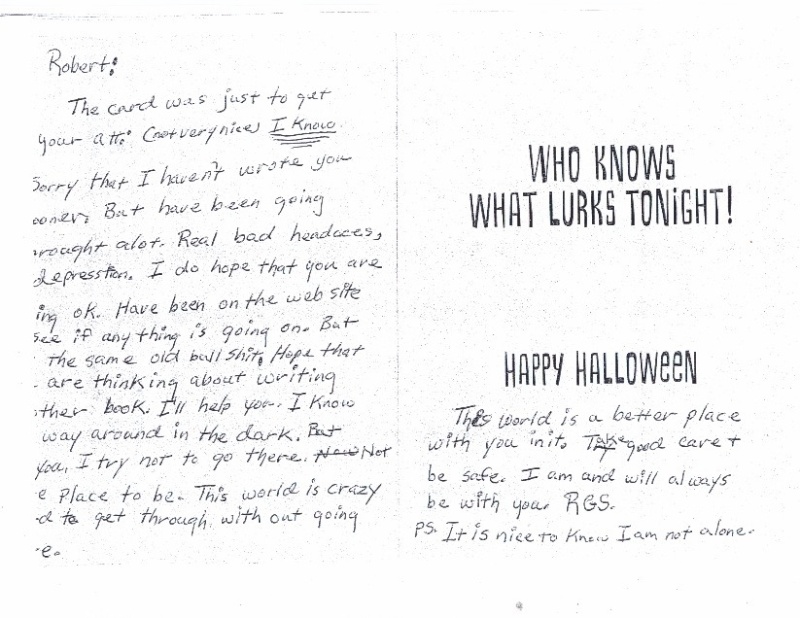 Robert:
The card was just to get
your att: (not very nice) I Know.
Sorry that I haven't wrote you
ooner. But have been going
rought alot. Real bad headaces,
depresstion. I do hope that you are
ing ok. Have been on the web site
see if any thing is going on. But
the same old bull shit. Hope that
are thinking about writing
ther book. I'll help you. I Know
way around in the dark. But
you, I try not to go there. Not
e Place to be. This world is crazy
d to get through with out going
e.
WHO KNOWS
WHAT LURKS TONIGHT!
HAPPY HALLOWEEN
This world is a better place
with you in it. Take good care +
be safe. I am and will always
be with you. RGS.
PS. It is nice to Know I am not alone.